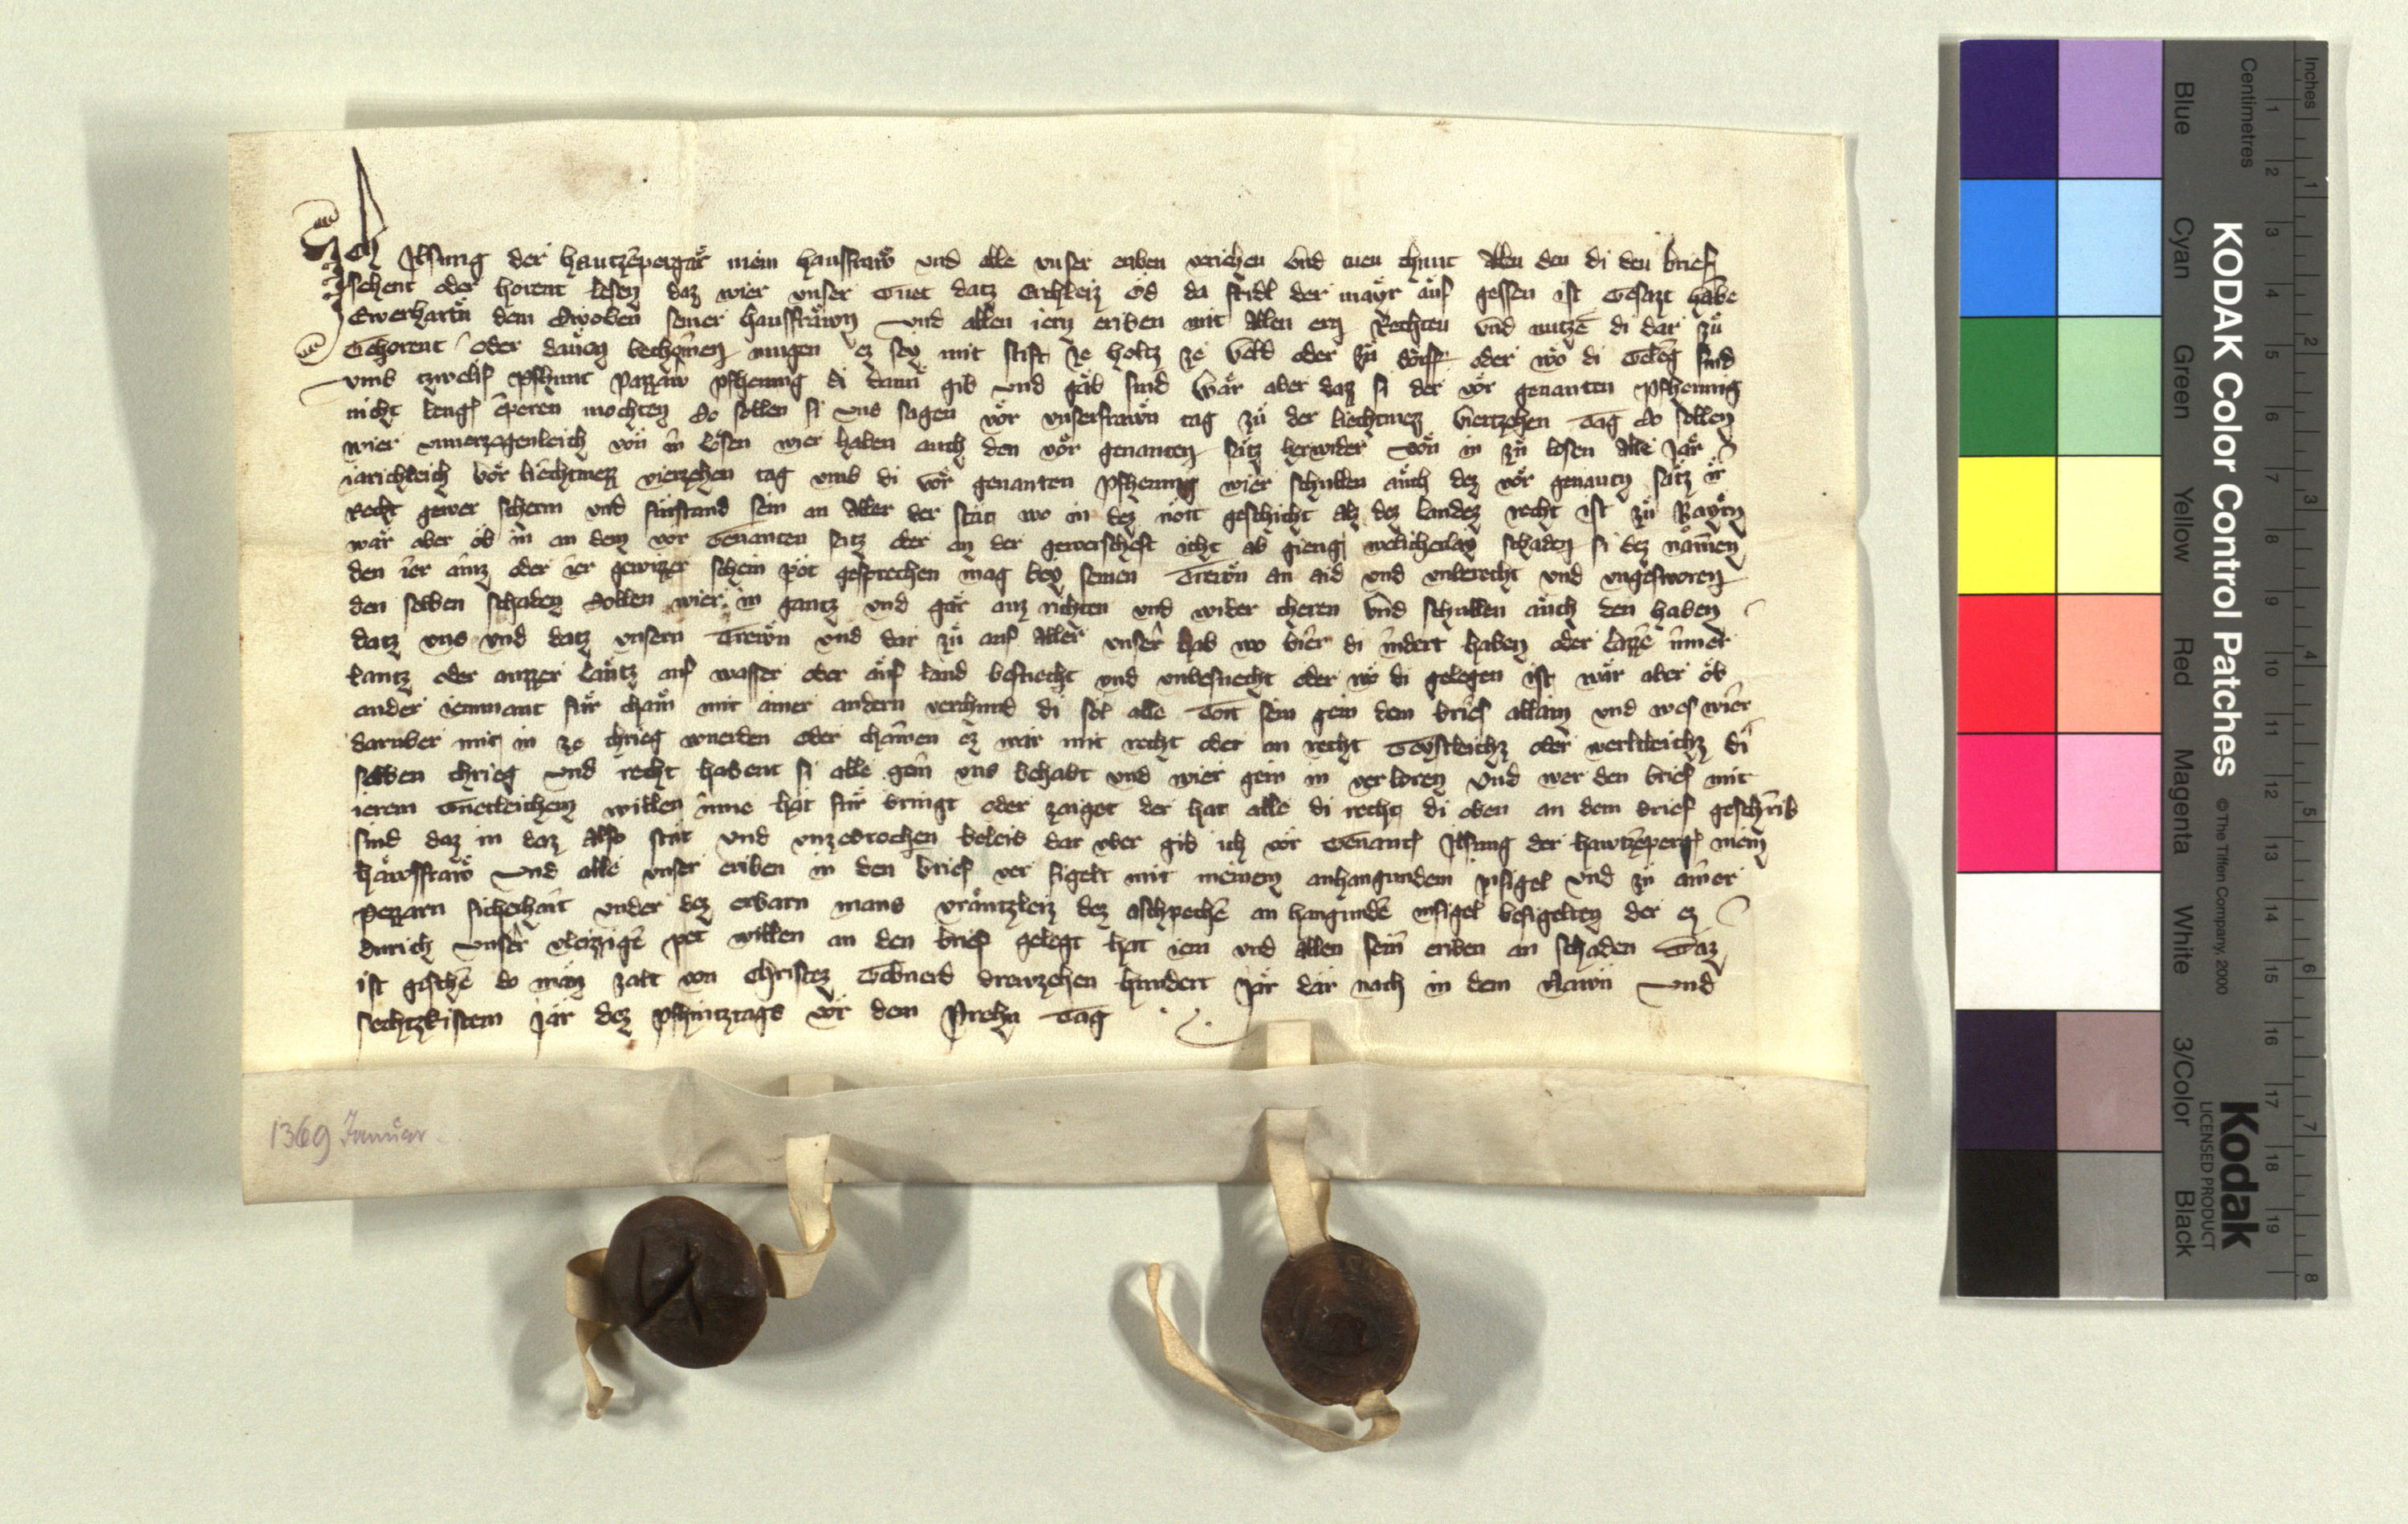 Ich Ilsung der hautzenpergär mein hausfraw vnd alle vnser eriben veriehen vnd tuen chunt allen den di den brief
sehent oder hörent lesen daz wier vnser Guet datz öd da fridl der mayr auf gessen ist Gesazt habē
Ewerhartn dem seiner hausfrawn vnd allen iern eriben mit allen ern Rechten vnd nutzē di dar zů
Gehorent oder dauon bechomen mugen ez sey mit stift ze holtz ze veld oder zů dorff oder wo di Gelēg sind
vmb tzwelif pfhunt pazzaw pfhenning di dann gib vnd gäb sind wär aber daz si der vor genanten pfhenning
nicht leng enperen mochten so sollen si vns sagen vor vnserfrawn tag zů der liechtmez viertzehen Tag so sollen
wier vnuerzogenleich von in lösen wier haben auch den vor genanten satz herwider von in zů losen alle Jar
järichleich vor liechtmezz vierzehen tag vmb di vor genanten pfhenning wier schullen auch dez vor genantn satz ir
recht gewer scherm vnd fürstand sein an aller der stat wo in dez nott geschicht alz dez landez recht ist zů Bayrn
wär aber ob in an dem vor Genanten satz oder an der gewerscheft icht ab gieng welicherlay schaden si dez nämen
den ier ainz oder ier gewizzer schein pot gesprechen mag bey seinen Trewn an aid vnd vnberecht vnd vngesworen
den selben schaden sollen wier in gantz vnd gar auz richten vnd wider cheren vnd schullen auch den haben
datz vns vnd datz vnsern Trewn vnd dar zů auf aller vnser hab wo wier di indert haben oder lazzē inner
lantz oder auzzer lantz auf wasser oder auf land besuecht vnd vnbesuecht oder wo di gelegen ist wär aber ob
ander iemmant für chäm mit ainer andern verchund di sol alle Tott sein gein dem brief allain vnd wes wier
daruber mit in ze chrieg wuerden oder chämen ez wär mit recht oder an recht Geystleichz oder werltleichz di
selben chrieg vnd recht habent si alle gein vns behabt vnd wier gein in verloren vnd wer den brief mit
ierem Guetleichem willen inne hat für bringt oder zaiget der hat alle di recht di oben an dem brief geschrib
sind daz in daz also stät vnd vnzebrochen beleib dar vber gib ich vor Genant Ilsung der hawtzenperger mein
hawsfraw vnd alle vnser eriben in den brief ver sigelt mit meinem anhangundem insigel vnd zů ainer
pezzarn sicherhait vnder dez erbarn mans dez aschpechē an hangundē insigel besigelten der ez
durich vnser vleizzigē pet willen an den brief gelegt hat iem vnd allen sein eriben an schaden Daz
ist geschē do man zalt von Christez Gebuerd drewzehen hundert Jar dar nach in dem Newn vnd
sechtzkistem Jar dez pfhintztags vor dem Prehn Tag
1369 Januar
KODAK Color Control Patches
© The Tiffen Company, 2000
Kodak
LICENSED PRODUCT
Inches
Centimetres
Blue
Cyan
Green
Yellow
Red
Magenta
White
3/Color
Black
1 2 3 4 5 6 7 8 9 10 11 12 13 14 15 16 17 18 19
1 2 3 4 5 6 7 8